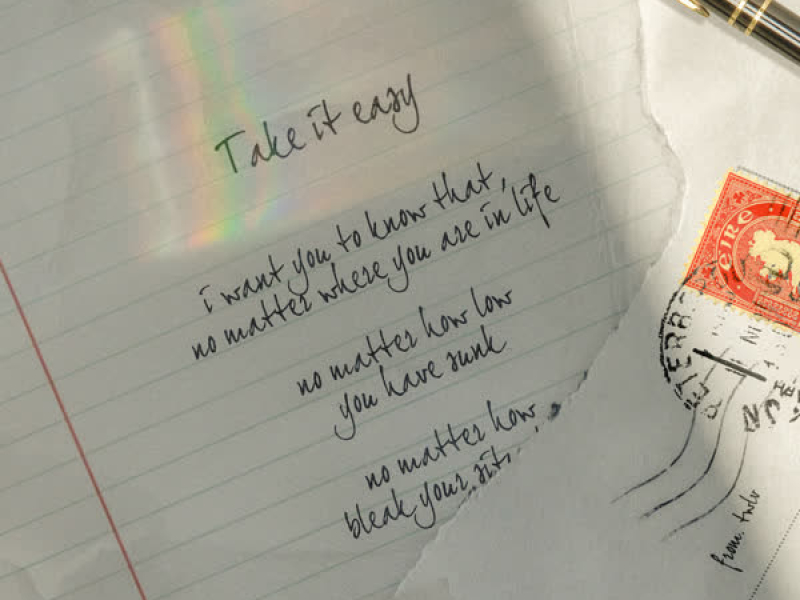 Take it easy
i want you to know that,
no matter where you are in life
no matter how low
you have sunk
no matter how
bleak your
EIRE